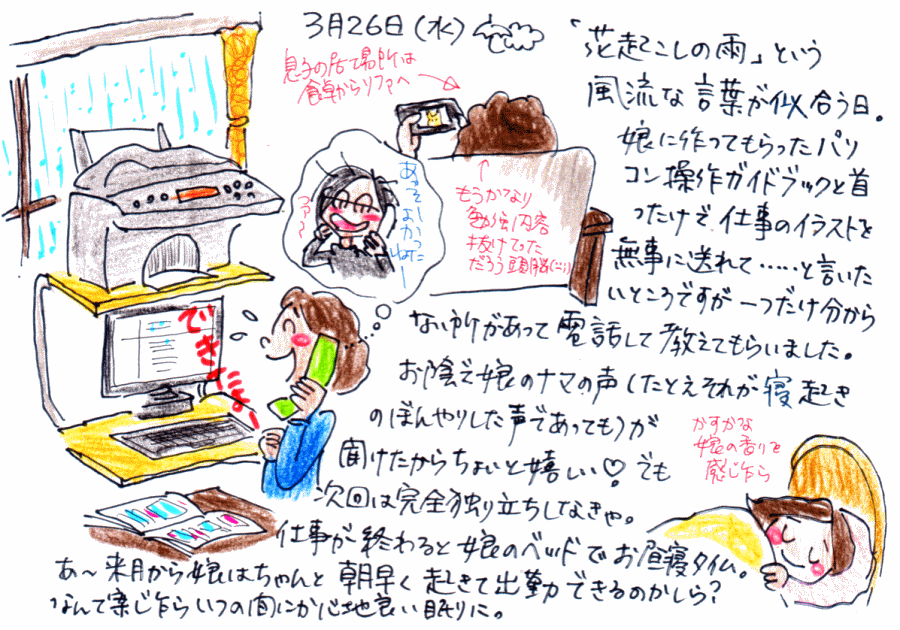 3月26日(水)
「花起こしの雨」という
風流な言葉が似合う日。
娘に作ってもらったパソ
コン操作ガイドブックと首
ったけで仕事のイラストを
無事に送れて……と言いた
いところですが一つだけ分から
ない所があって電話して教えてもらいました。
お陰で娘のナマの声(たとえそれが寝起き
のぼんやりした声であっても)が
聞けたからちょいと嬉しい♡でも
次回は完全独り立ちしなきゃ。
仕事が終わると娘のベッドでお昼寝タイム。
あ〜来月から娘はちゃんと朝早く起きて出勤できるのかしら?
なんて案じ乍らいつの間にか心地良い眠りに。
息子の居て場所は
食卓からソファへ
もうかなり
勉強内容
抜けてった
だろう頭脳(笑)
あっそー
よかった
ねー
ファ〜
できたよー
かすかな
娘の香りを
感じ乍ら